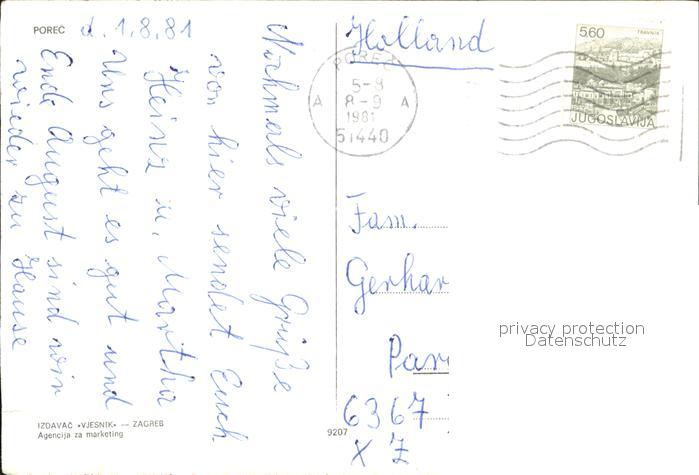 POREČ
d. 1.8.81
Nochmals viele Grüße
von hier sendet Euch
Heinz u. Martha
Uns geht es gut und
Ende August sind wir
wieder zu Hause
IZDAVAČ •VJESNIK• — ZAGREB
Agencija za marketing
9207
Holland
POREČ
5-8
A 8-9 A
1981
51440
5.60
TRAVNIK
JUGOSLAVIJA
Fam.
Gerhar
Par
6367
X Z
privacy protection
Datenschutz